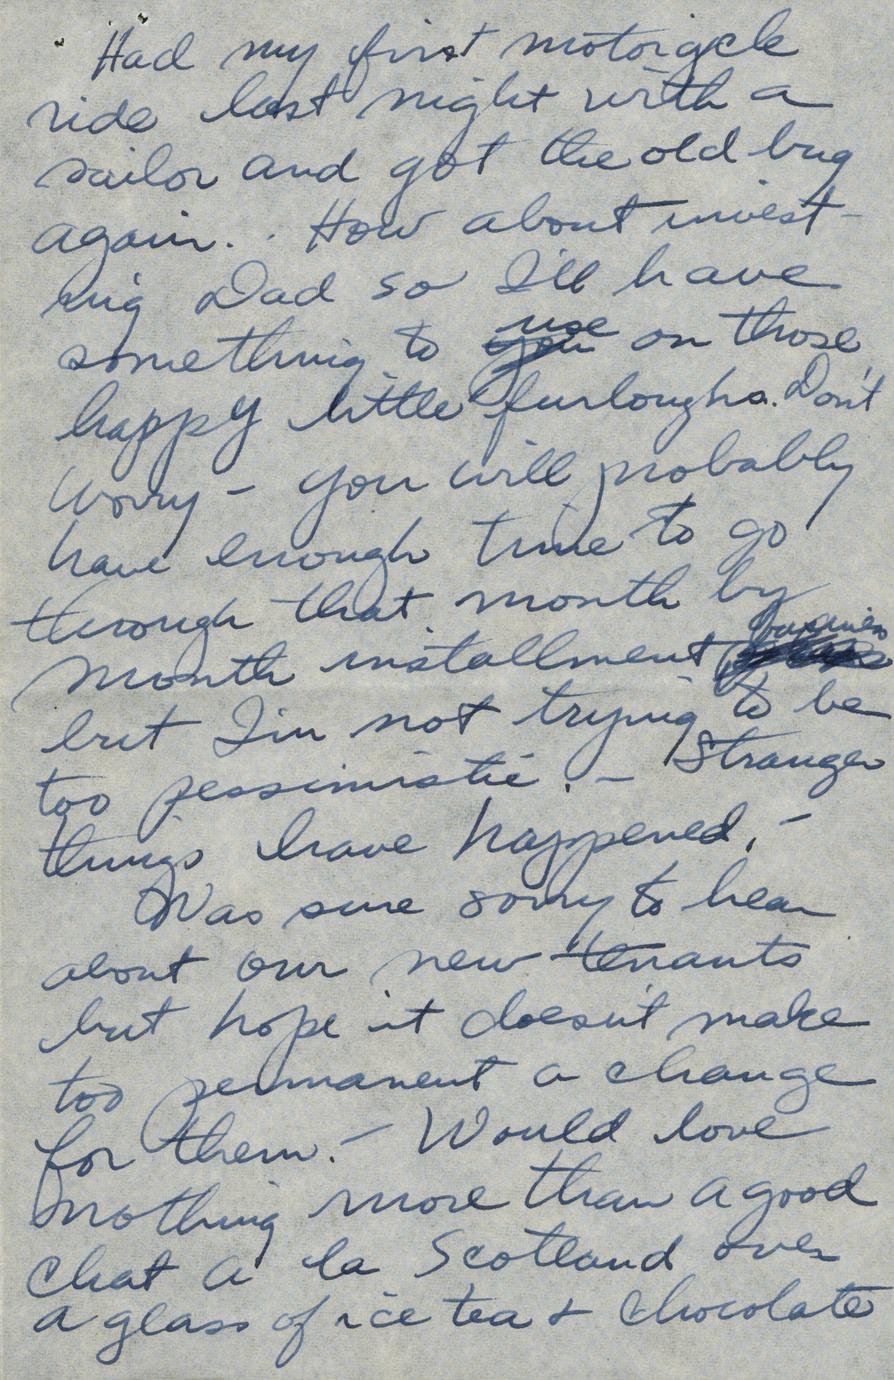 Had my first motorcycle
ride last night with a
sailor and got the old bug
again. . How about invest-
ing Dad so I'll have
something to use on those
happy little furloughs. Don't
worry – you will probably
have enough time to go
through that month by
month installment business
but I'm not trying to be
too pessimistic. – Stranger
things have happened. –
Was sure sorry to hear
about our new tenants
but hope it doesn't make
too permanent a change
for them. – Would love
nothing more than a good
chat a la Scotland over
a glass of ice tea & chocolate